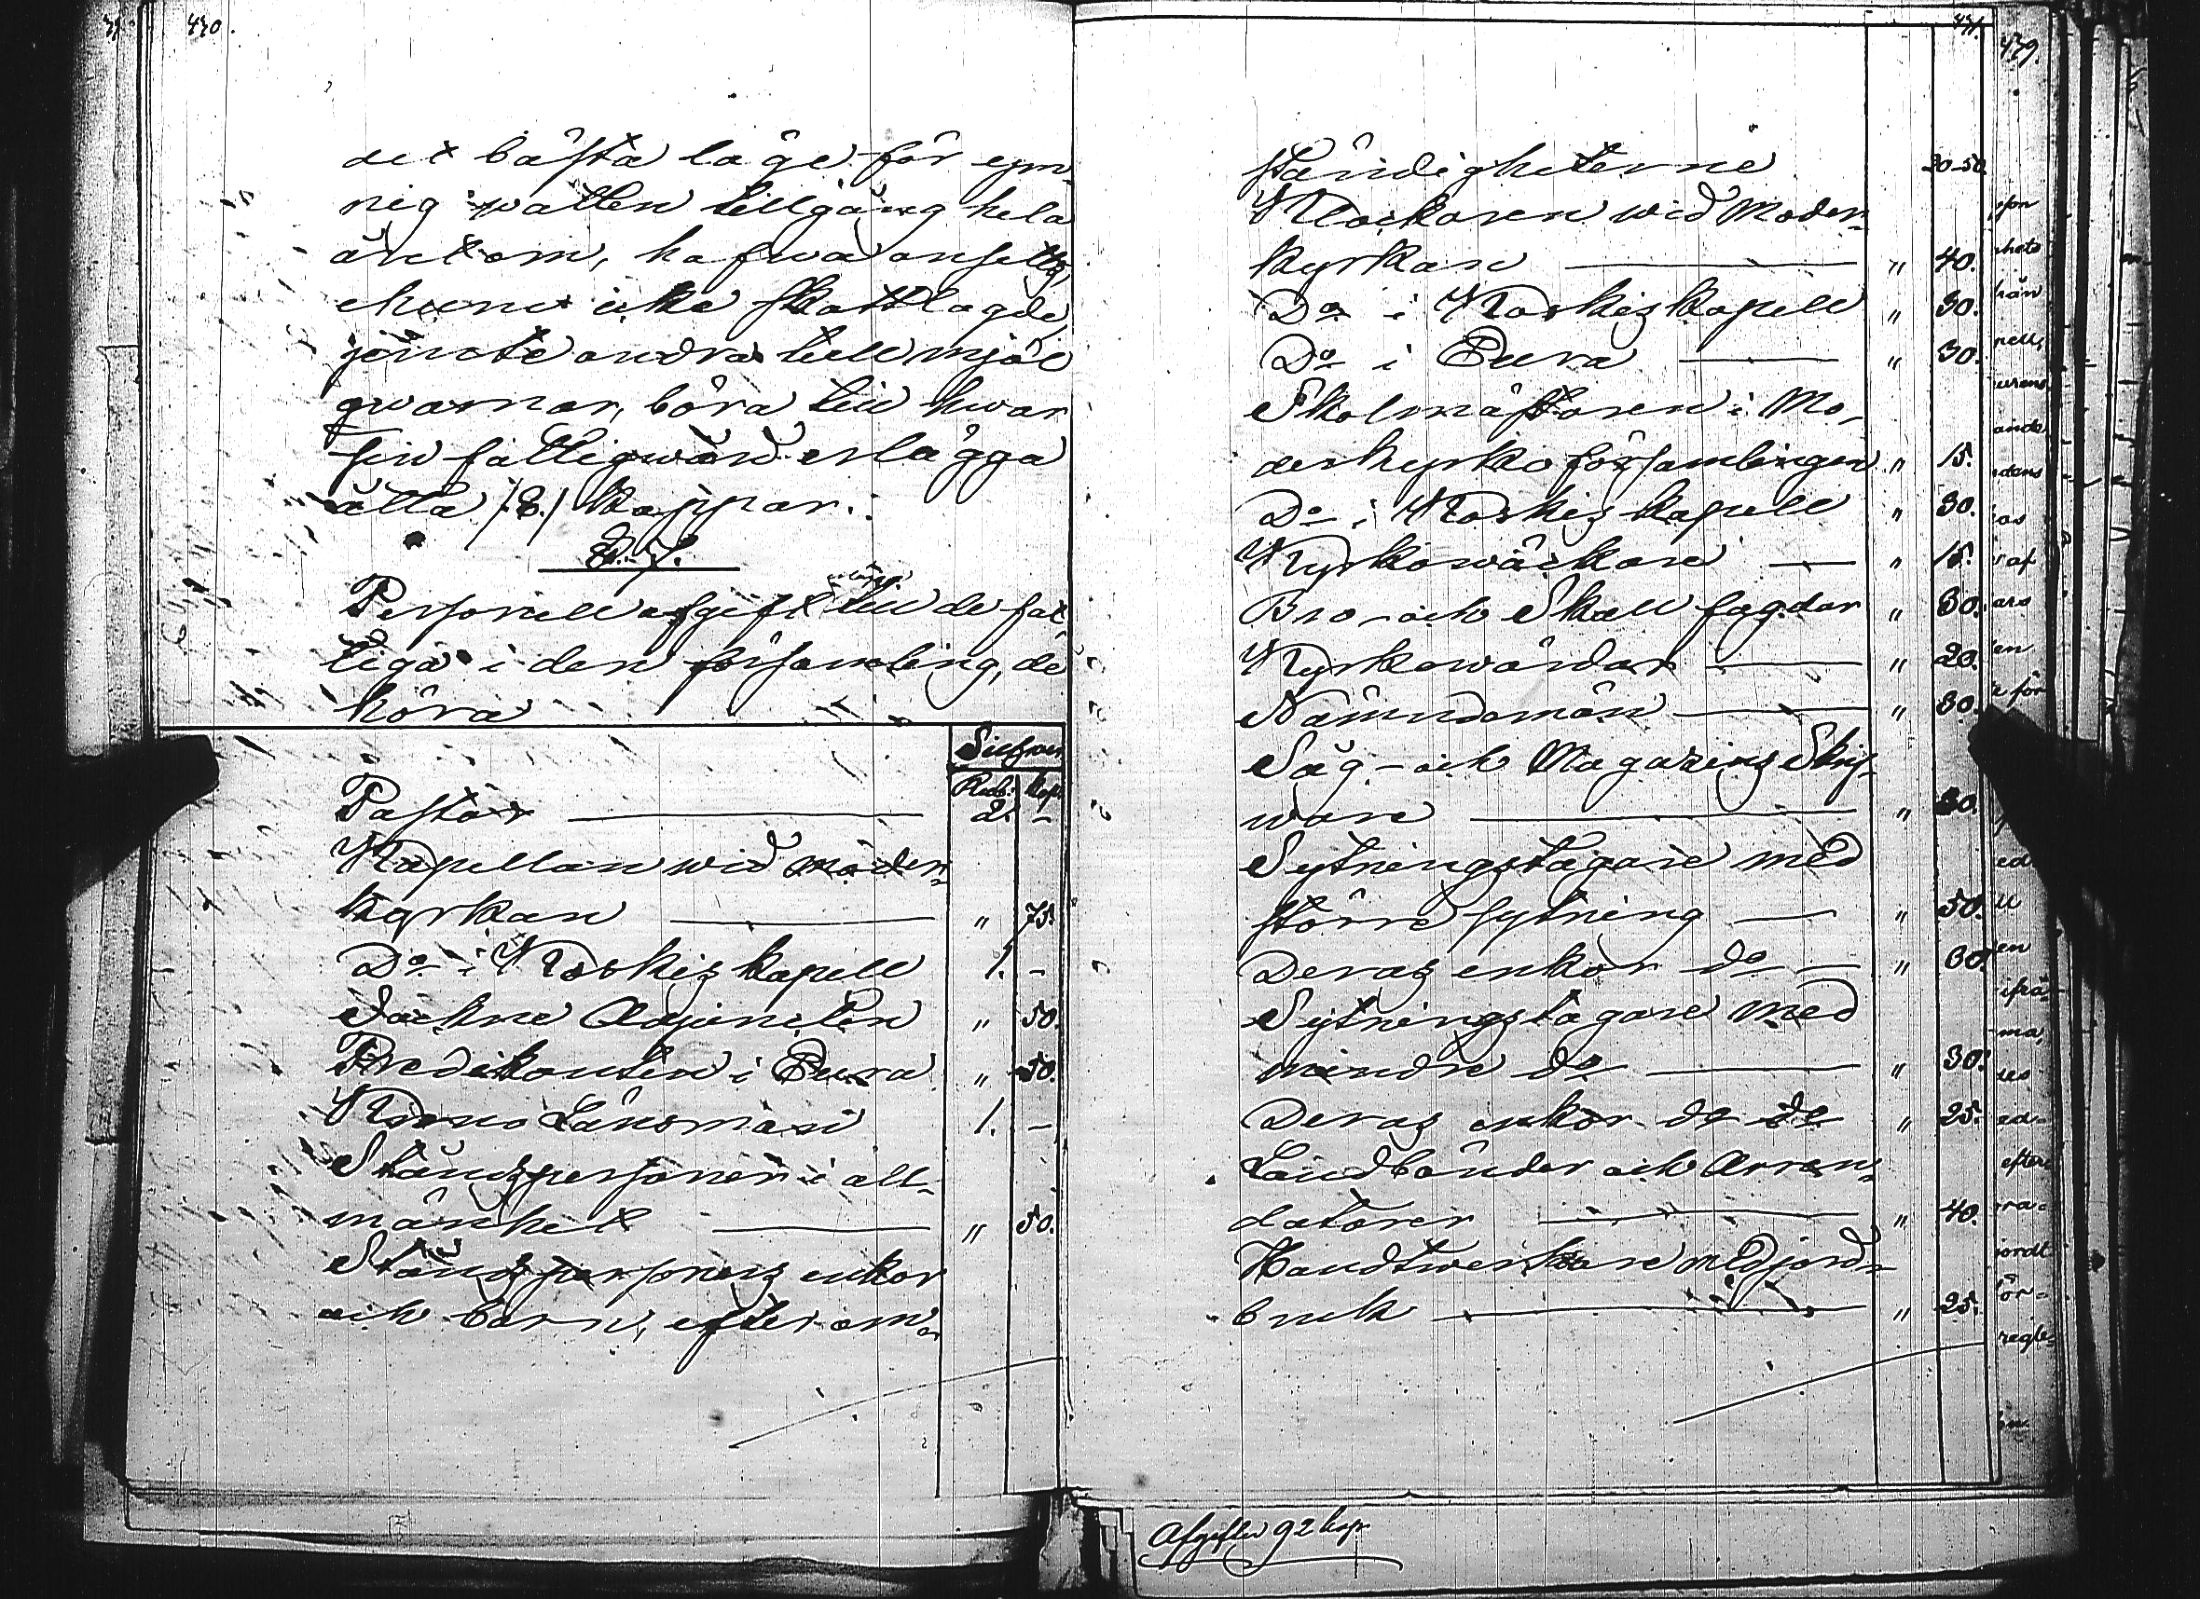 470.
det bästa läge för ym-
nig watten tillgång hela
året om, hafwa ansetts,
ehuru icke skattlagde,
jemte andra till mjöl
qwarnar, böra till hwar
sin fattigwård erlägga
åtta /:8:/ kappar.
§. 7.
Personell afgift till de fat
tiga i den församling, de
höra
Silfwer
Rub: kop:
Pastor — 2. -
Kapellan wid moder-
kyrkan — " 75.
Do i Koskis kapell 1. -
Sockne Adjuncten " 50.
Predikanten i Eura " 50.
Krono Länsman 1. -
Ståndspersoner i all-
mänhet — " 50.
Ståndspersons enkor
och barn, efter om-
471.
ständigheterne 20-50.
Klockaren wid Moder-
kyrkan — " 40.
Do i Koskis kapell " 30.
Do i Eura — " 30.
Skolmästaren i Mo-
derkyrko församlingen " 15.
Do i Koskis kapell " 30.
Kyrkowäckare — " 15.
Bro- och Skall fogdar " 30.
Kyrkowärdar — " 20.
Nämndemän — " 30.
Såg- och Magazins Skrif-
ware — " 30.
Sytningstagare med
större sytning — " 50.
Deras enkor do — " 30.
Sytningstagare med
mindre do — " 30.
Deras enkor do do " 25.
Landbönder och Arren-
datorer — " 40.
Handtwerkare med jord-
bruk — " 25.
479.
Afgifter 92 kop